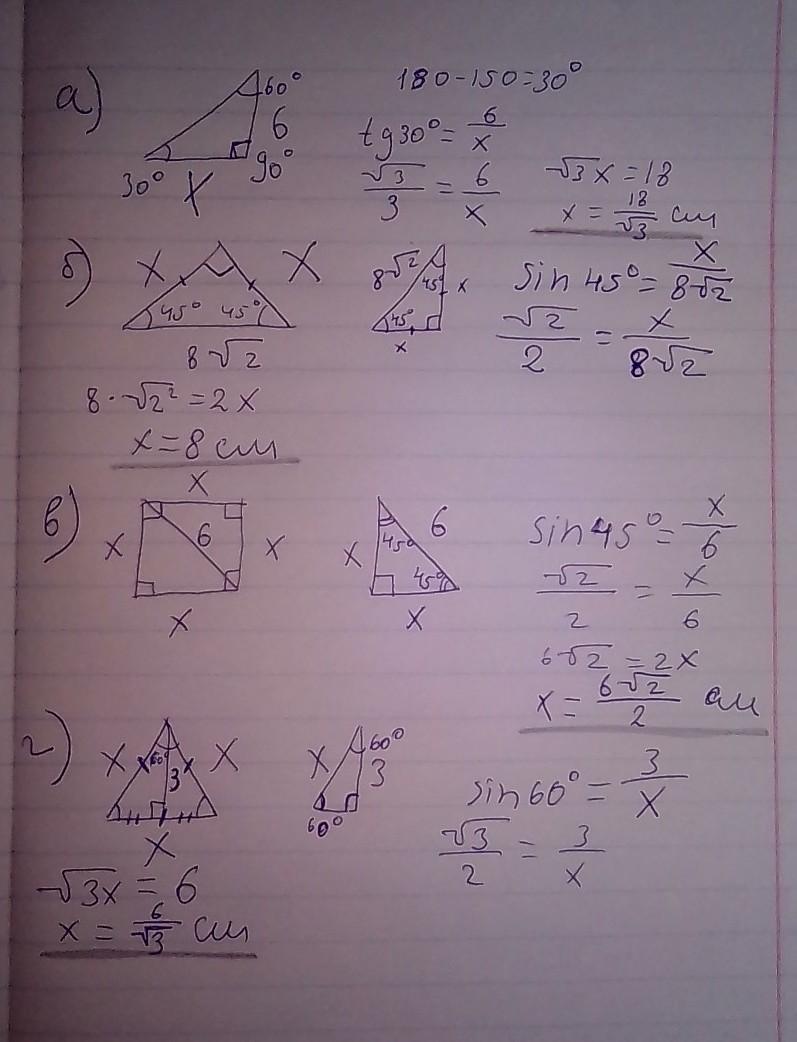 а)
60°
6
90°
30°
x
180-150=30°
tg30°= 6/x
√3/3 = 6/x
√3x = 18
x = 18/√3 см
б)
x
x
45° 45°
8√2
8√2
45°
x
45°
x
sin 45° = x/8√2
√2/2 = x/8√2
8·√2² = 2x
x = 8 см
в)
x
x
6
x
x
6
45°
x
45°
x
sin45° = x/6
√2/2 = x/6
6√2 = 2x
x = 6√2/2 см
г)
x
60°
3
x
x
x
60°
3
60°
sin60° = 3/x
√3/2 = 3/x
√3x = 6
x = 6/√3 см